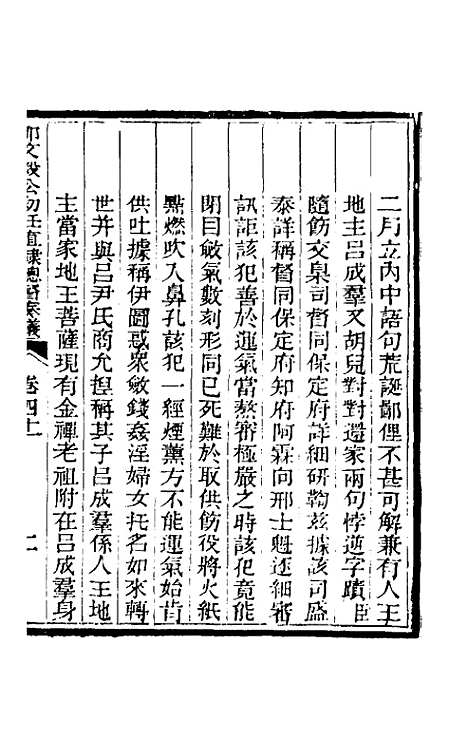 二月立內中語句荒誕鄙俚不甚可解兼有人王
地主呂成羣又胡兒對對還家兩句悖逆字蹟臣
隨飭交臬司督同保定府詳細研鞫茲據該司盛
泰詳稱督同保定府知府阿霖向邢士魁逐細審
訊詎該犯善於運氣當熬審極嚴之時該犯竟能
閉目斂氣數刻形同已死難於取供飭役將火紙
㸃燃吹入鼻孔該犯一經煙薰方不能運氣始肯
供吐據稱伊圖惑衆斂錢姦淫婦女托名如來轉
世并與呂尹氏商允揑稱其子呂成羣係人王地
主當家地王菩薩現有金禪老祖附在呂成羣身
那文毅公初任直隸總督奏議
卷四十
二